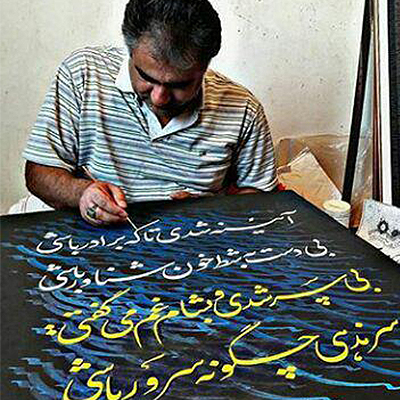 آئینه شدی تا که برادر باشی
بی دست به شط خون شناور باشی
بی سر شدی و بشام غم می گفتی
سر چگونه سرور باشی